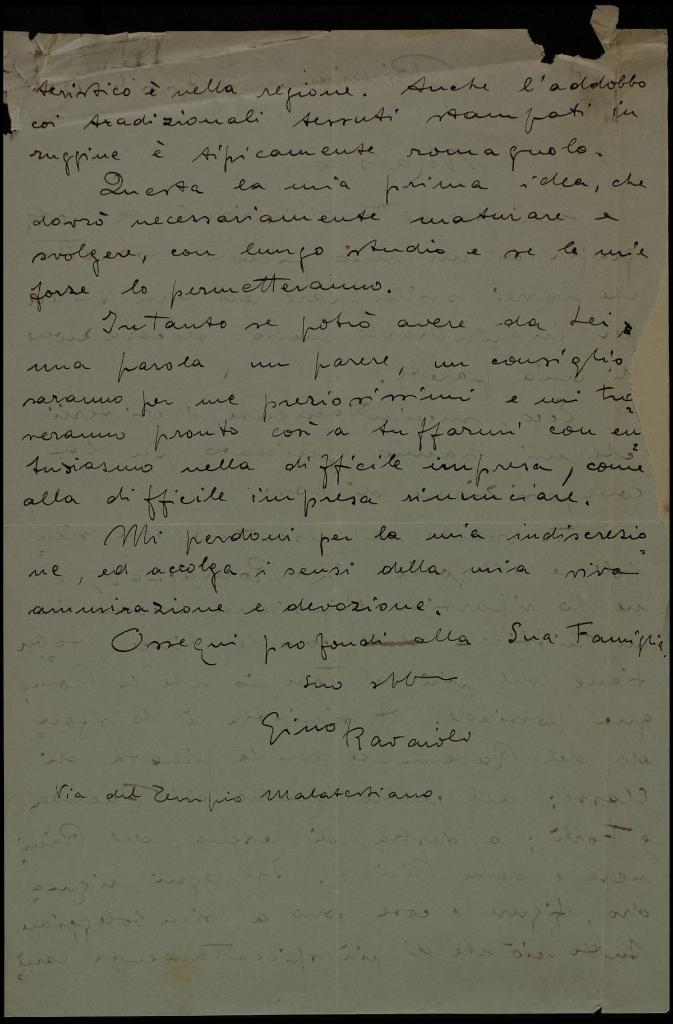 teristico è nella regione. Anche l'addobbo
coi tradizionali tessuti stampati in
ruggine è tipicamente romagnolo.
Questa la mia prima idea, che
dovrò necessariamente maturare e
svolgere, con lungo studio e se le mie
forze lo permetteranno.
Intanto se potrò avere da Lei,
una parola, un parere, un consiglio
saranno per me preziosissimi e mi tro=
veranno pronto così a tuffarmi con en=
tusiasmo nella difficile impresa, come
alla difficile impresa rinunciare.
Mi perdoni per la mia indiscrezio=
ne, ed accolga i sensi della mia viva
ammirazione e devozione.
Ossequi profondi alla Sua Famiglia.
suo obb
Gino Ravaioli
Via del Tempio Malatestiano.